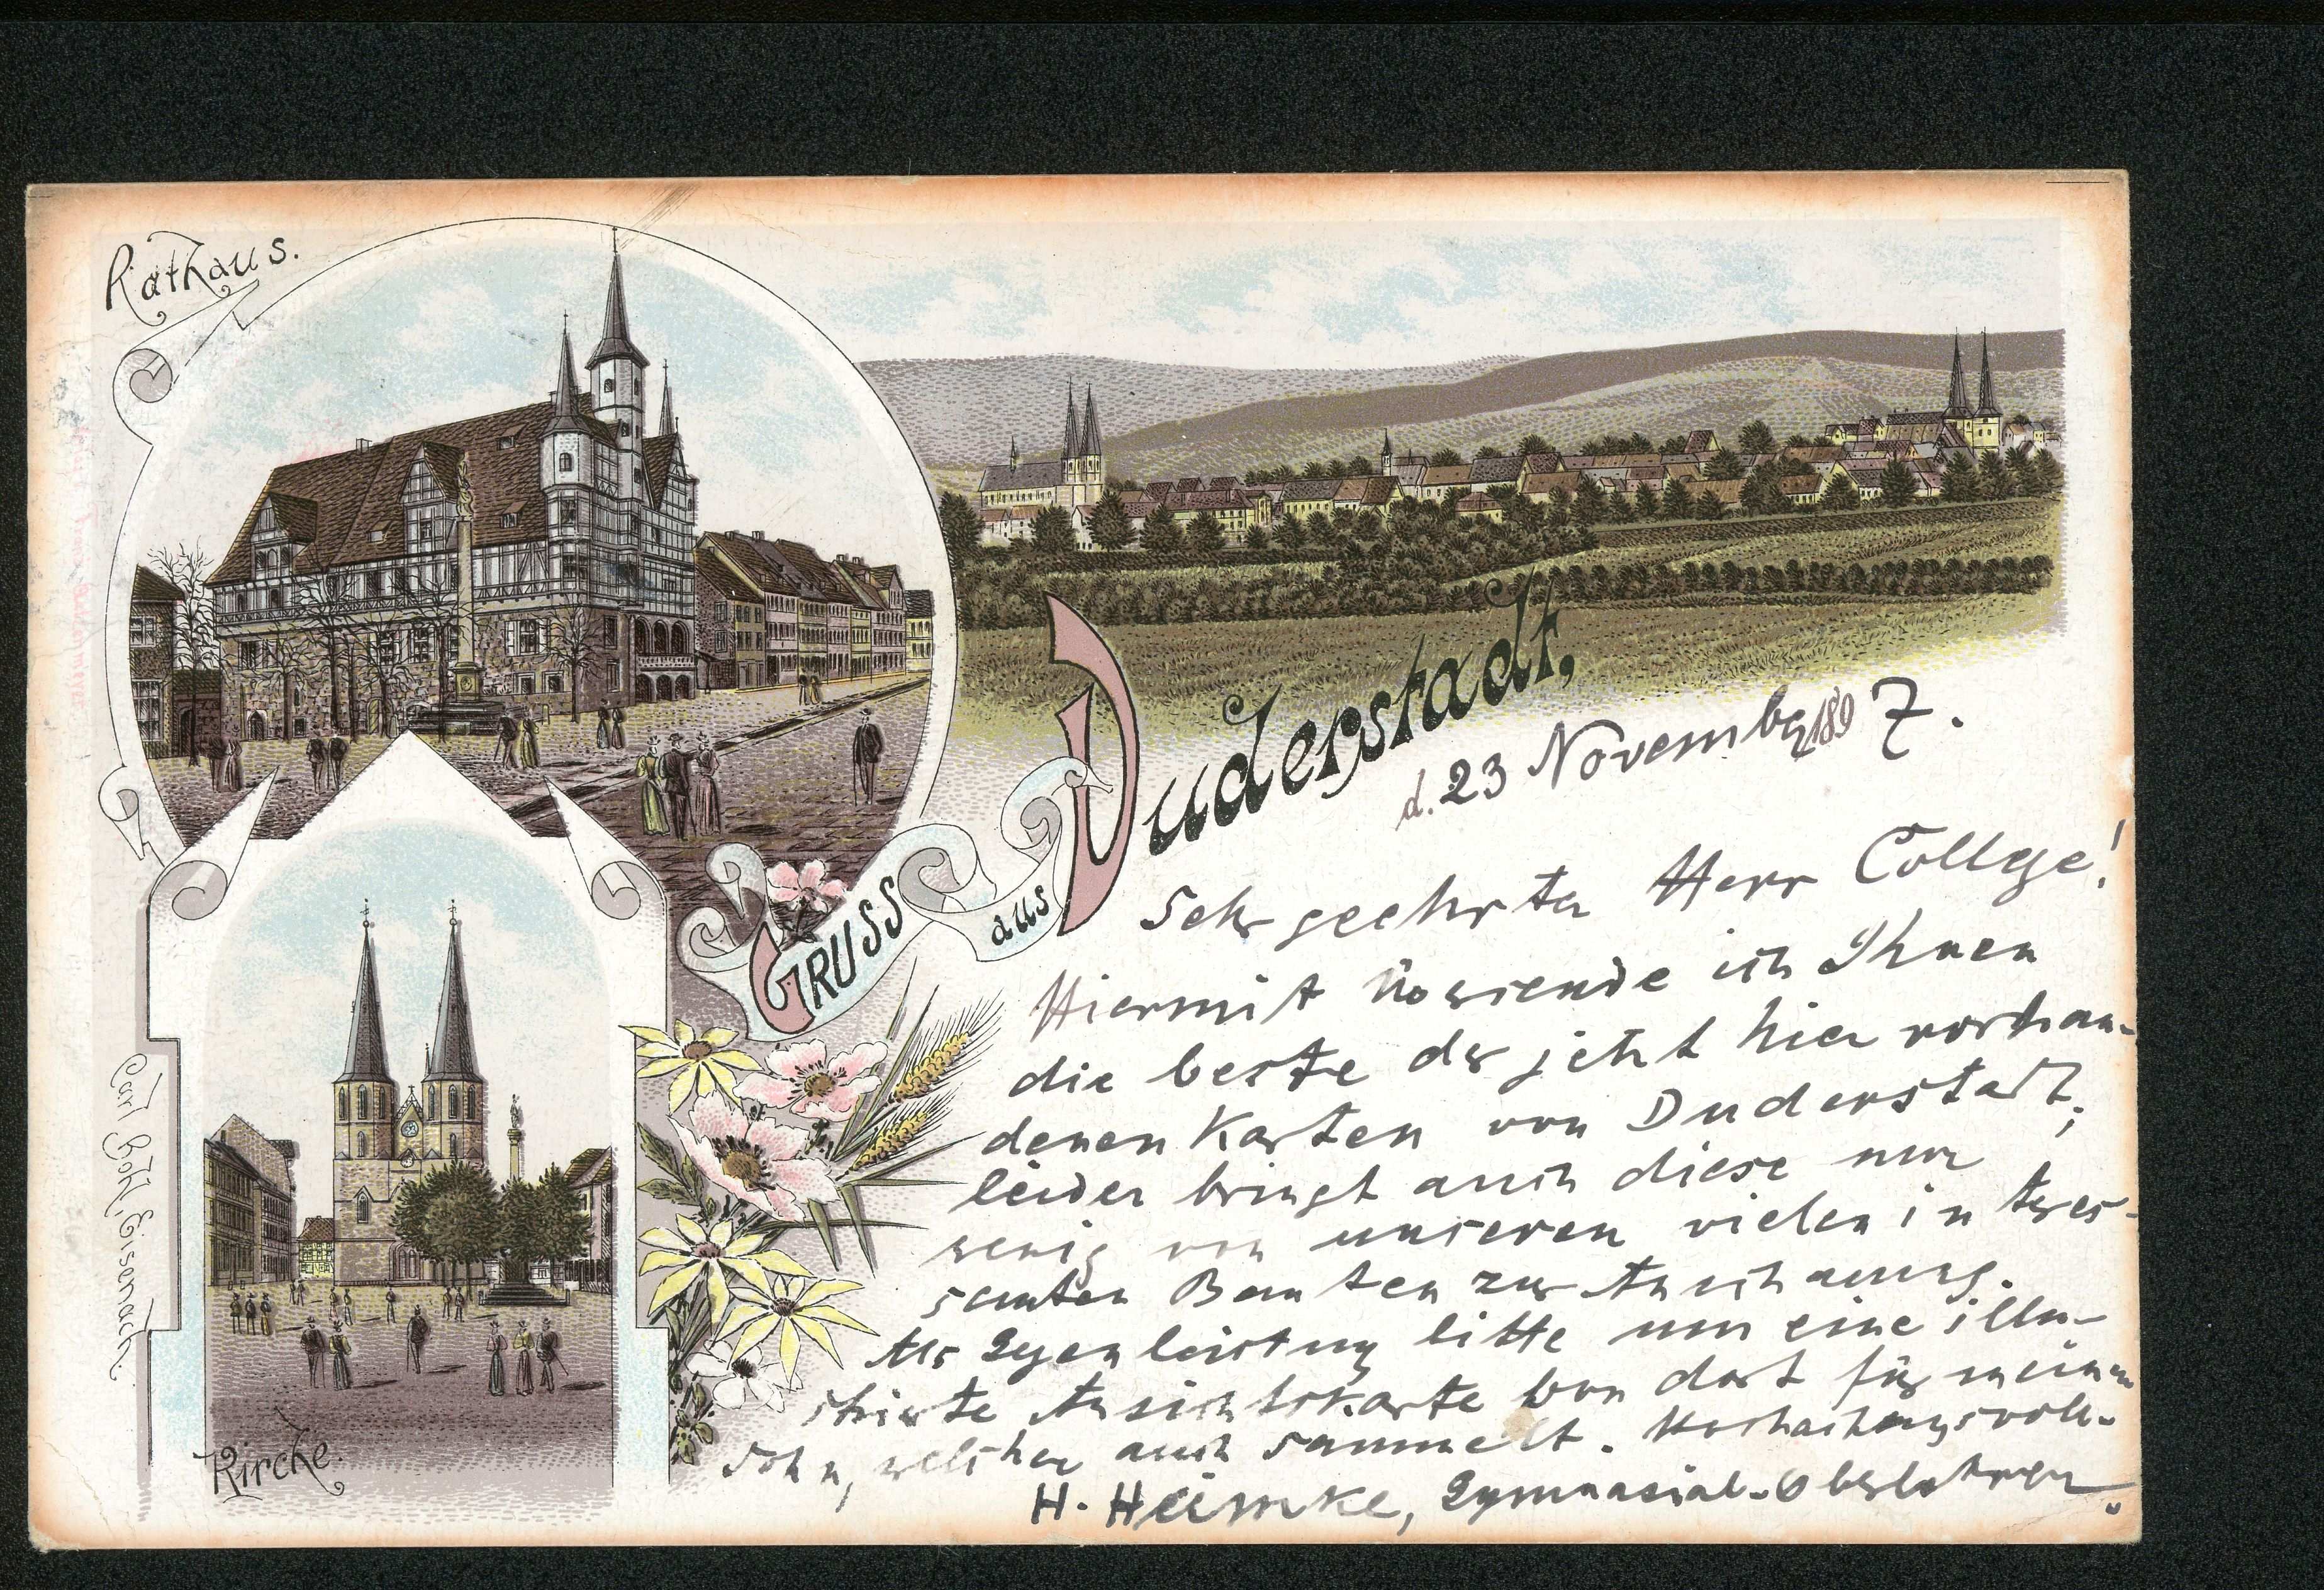 Rathaus.
GRUSS aus Duderstadt,
d. 23 November 1897.
Sehr geehrter Herr College!
Hiermit übersende ich Ihnen
die beste der jetzt hier vorhan-
denen Karten von Duderstadt;
leider bringt auch diese nur
wenig von unseren vielen interes-
santen Bauten zur Anschauung.
Als Gegenleistung bitte um eine illu-
strirte Ansichtskarte von dort für meinen
Sohn, welcher auch sammelt. Hochachtungsvoll.
H. Heimke, Gymnasial-Oberlehrer.
Kirche.
Carl Röhl, Eisenach.